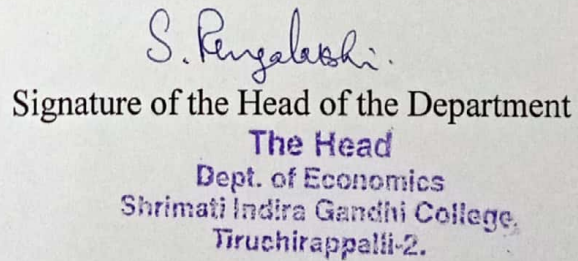 S. Rengalakshi.
Signature of the Head of the Department
The Head
Dept. of Economics
Shrimati Indira Gandhi College,
Tiruchirappalli-2.